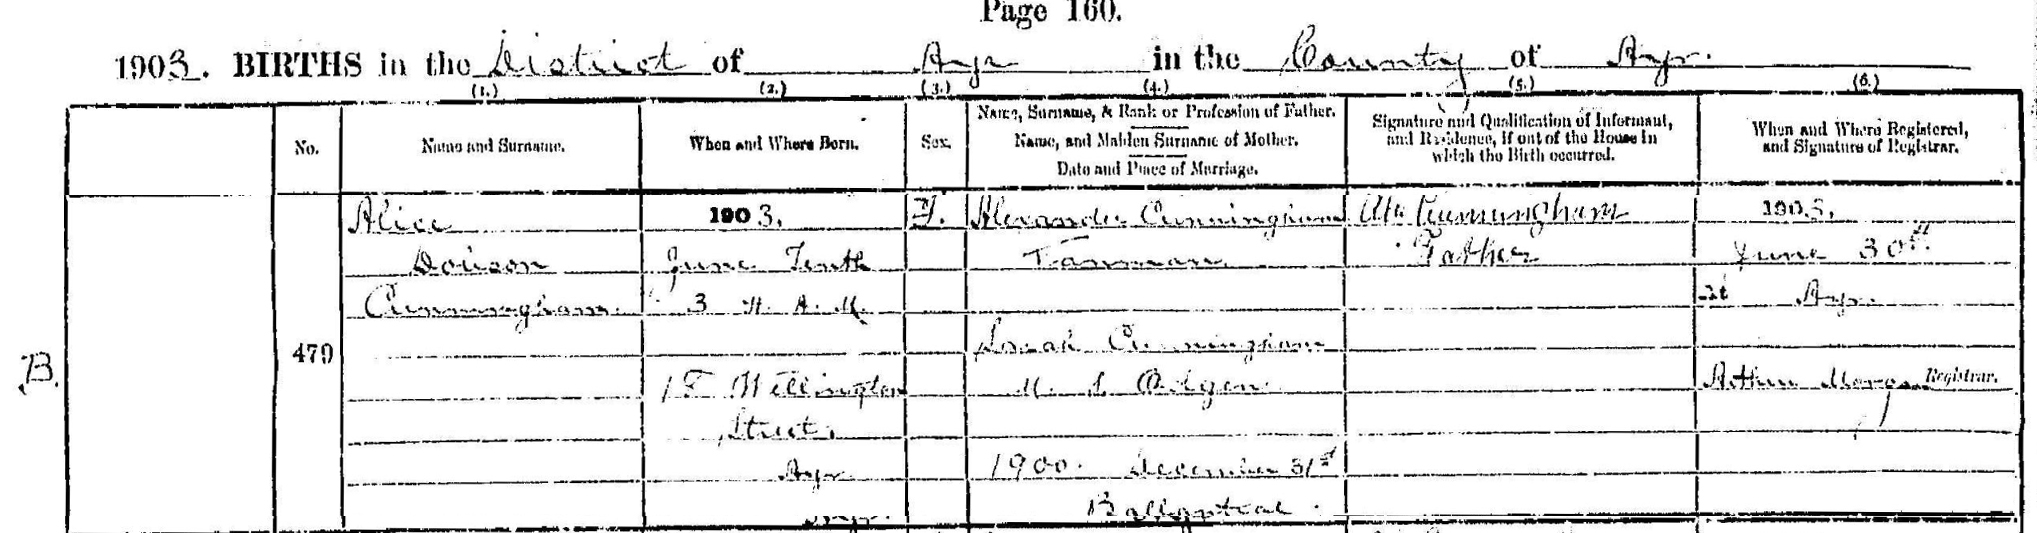 Page 160.
1903. BIRTHS in the District of Ayr in the County of Ayr.
(1.) (2.) (3.) (4.) (5.) (6.)
No.
Name and Surname.
When and Where Born.
Sex.
Name, Surname, & Rank or Profession of Father.
Name, and Maiden Surname of Mother.
Date and Place of Marriage.
Signature and Qualification of Informant,
and Residence, if out of the House in
which the Birth occurred.
When and Where Registered,
and Signature of Registrar.
B.
479
Alice
Cunningham
1903.
June Tenth
3 H. A. M.
Wellington
Street.
Ayr
F.
Alexander Cunningham
Cunningham
M. S.
1900. December 31st
Ballantrae
Cunningham
Father
1903.
June 30th
At Ayr.
Arthur Registrar.